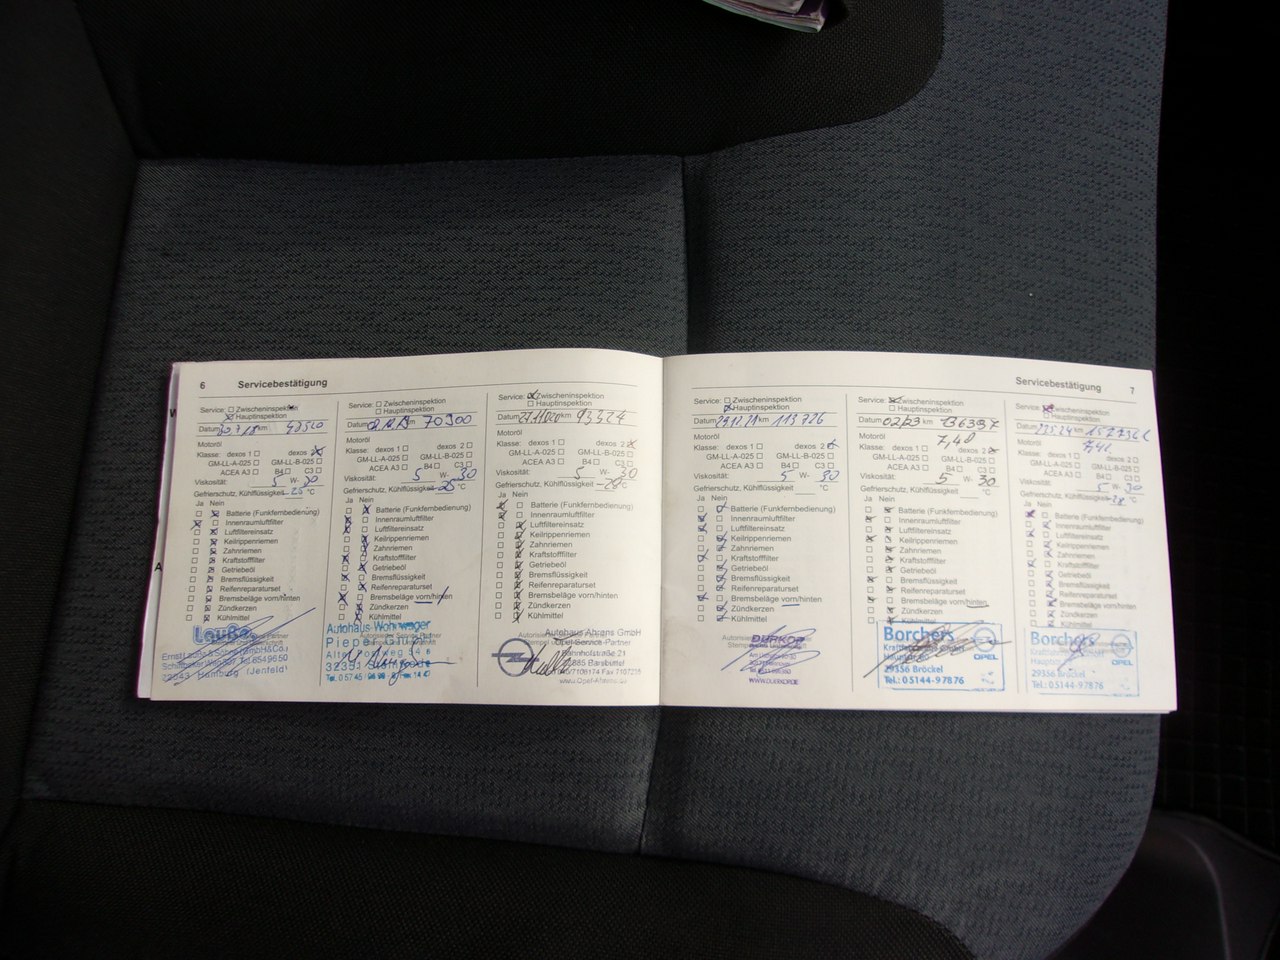 6 Servicebestätigung
Service: Zwischeninspektion
Hauptinspektion
Datum km
Motoröl
Klasse: dexos 1 dexos 2
GM-LL-A-025 GM-LL-B-025
ACEA A3 B4 C3
Viskosität: 5 W- 30
Gefrierschutz, Kühlflüssigkeit °C
Ja Nein
Batterie (Funkfernbedienung)
Innenraumluftfilter
Luftfiltereinsatz
Keilrippenriemen
Zahnriemen
Kraftstofffilter
Getriebeöl
Bremsflüssigkeit
Reifenreparaturset
Bremsbeläge vorn/hinten
Zündkerzen
Kühlmittel
Hamburg (Jenfeld)
Service: Zwischeninspektion
Hauptinspektion
Datum km 70300
Motoröl
Klasse: dexos 1 dexos 2
GM-LL-A-025 GM-LL-B-025
ACEA A3 B4 C3
Viskosität: 5 W- 30
Gefrierschutz, Kühlflüssigkeit -25 °C
Ja Nein
Batterie (Funkfernbedienung)
Innenraumluftfilter
Luftfiltereinsatz
Keilrippenriemen
Zahnriemen
Kraftstofffilter
Getriebeöl
Bremsflüssigkeit
Reifenreparaturset
Bremsbeläge vorn/hinten
Zündkerzen
Kühlmittel
Autohaus
Pieper GmbH
Service: Zwischeninspektion
Hauptinspektion
Datum km 93524
Motoröl
Klasse: dexos 1 dexos 2
GM-LL-A-025 GM-LL-B-025
ACEA A3 B4 C3
Viskosität: 5 W- 30
Gefrierschutz, Kühlflüssigkeit -28 °C
Ja Nein
Batterie (Funkfernbedienung)
Innenraumluftfilter
Luftfiltereinsatz
Keilrippenriemen
Zahnriemen
Kraftstofffilter
Getriebeöl
Bremsflüssigkeit
Reifenreparaturset
Bremsbeläge vorn/hinten
Zündkerzen
Kühlmittel
Autohaus Ahrens GmbH
Opel-Service-Partner
Bahnhofstraße 21
Barsbüttel
Servicebestätigung 7
Service: Zwischeninspektion
Hauptinspektion
Datum km 113726
Motoröl
Klasse: dexos 1 dexos 2
GM-LL-A-025 GM-LL-B-025
ACEA A3 B4 C3
Viskosität: 5 W- 30
Gefrierschutz, Kühlflüssigkeit °C
Ja Nein
Batterie (Funkfernbedienung)
Innenraumluftfilter
Luftfiltereinsatz
Keilrippenriemen
Zahnriemen
Kraftstofffilter
Getriebeöl
Bremsflüssigkeit
Reifenreparaturset
Bremsbeläge vorn/hinten
Zündkerzen
Kühlmittel
DÜRKOP
WWW.DUERKOP.DE
Service: Zwischeninspektion
Hauptinspektion
Datum 02/23 km 136397
Motoröl 7,4l
Klasse: dexos 1 dexos 2
GM-LL-A-025 GM-LL-B-025
ACEA A3 B4 C3
Viskosität: 5 W- 30
Gefrierschutz, Kühlflüssigkeit °C
Ja Nein
Batterie (Funkfernbedienung)
Innenraumluftfilter
Luftfiltereinsatz
Keilrippenriemen
Zahnriemen
Kraftstofffilter
Getriebeöl
Bremsflüssigkeit
Reifenreparaturset
Bremsbeläge vorn/hinten
Zündkerzen
Kühlmittel
Borchers
OPEL
29356 Bröckel
Tel.: 05144-97876
Service: Zwischeninspektion
Hauptinspektion
Motoröl 7,4l
Klasse: dexos 1 dexos 2
GM-LL-A-025 GM-LL-B-025
ACEA A3 B4 C3
Viskosität: 5 W- 30
Gefrierschutz, Kühlflüssigkeit -28 °C
Ja Nein
Batterie (Funkfernbedienung)
Innenraumluftfilter
Luftfiltereinsatz
Keilrippenriemen
Zahnriemen
Kraftstofffilter
Getriebeöl
Bremsflüssigkeit
Reifenreparaturset
Bremsbeläge vorn/hinten
Zündkerzen
Kühlmittel
Borchers
OPEL
29356 Bröckel
Tel.: 05144-97876